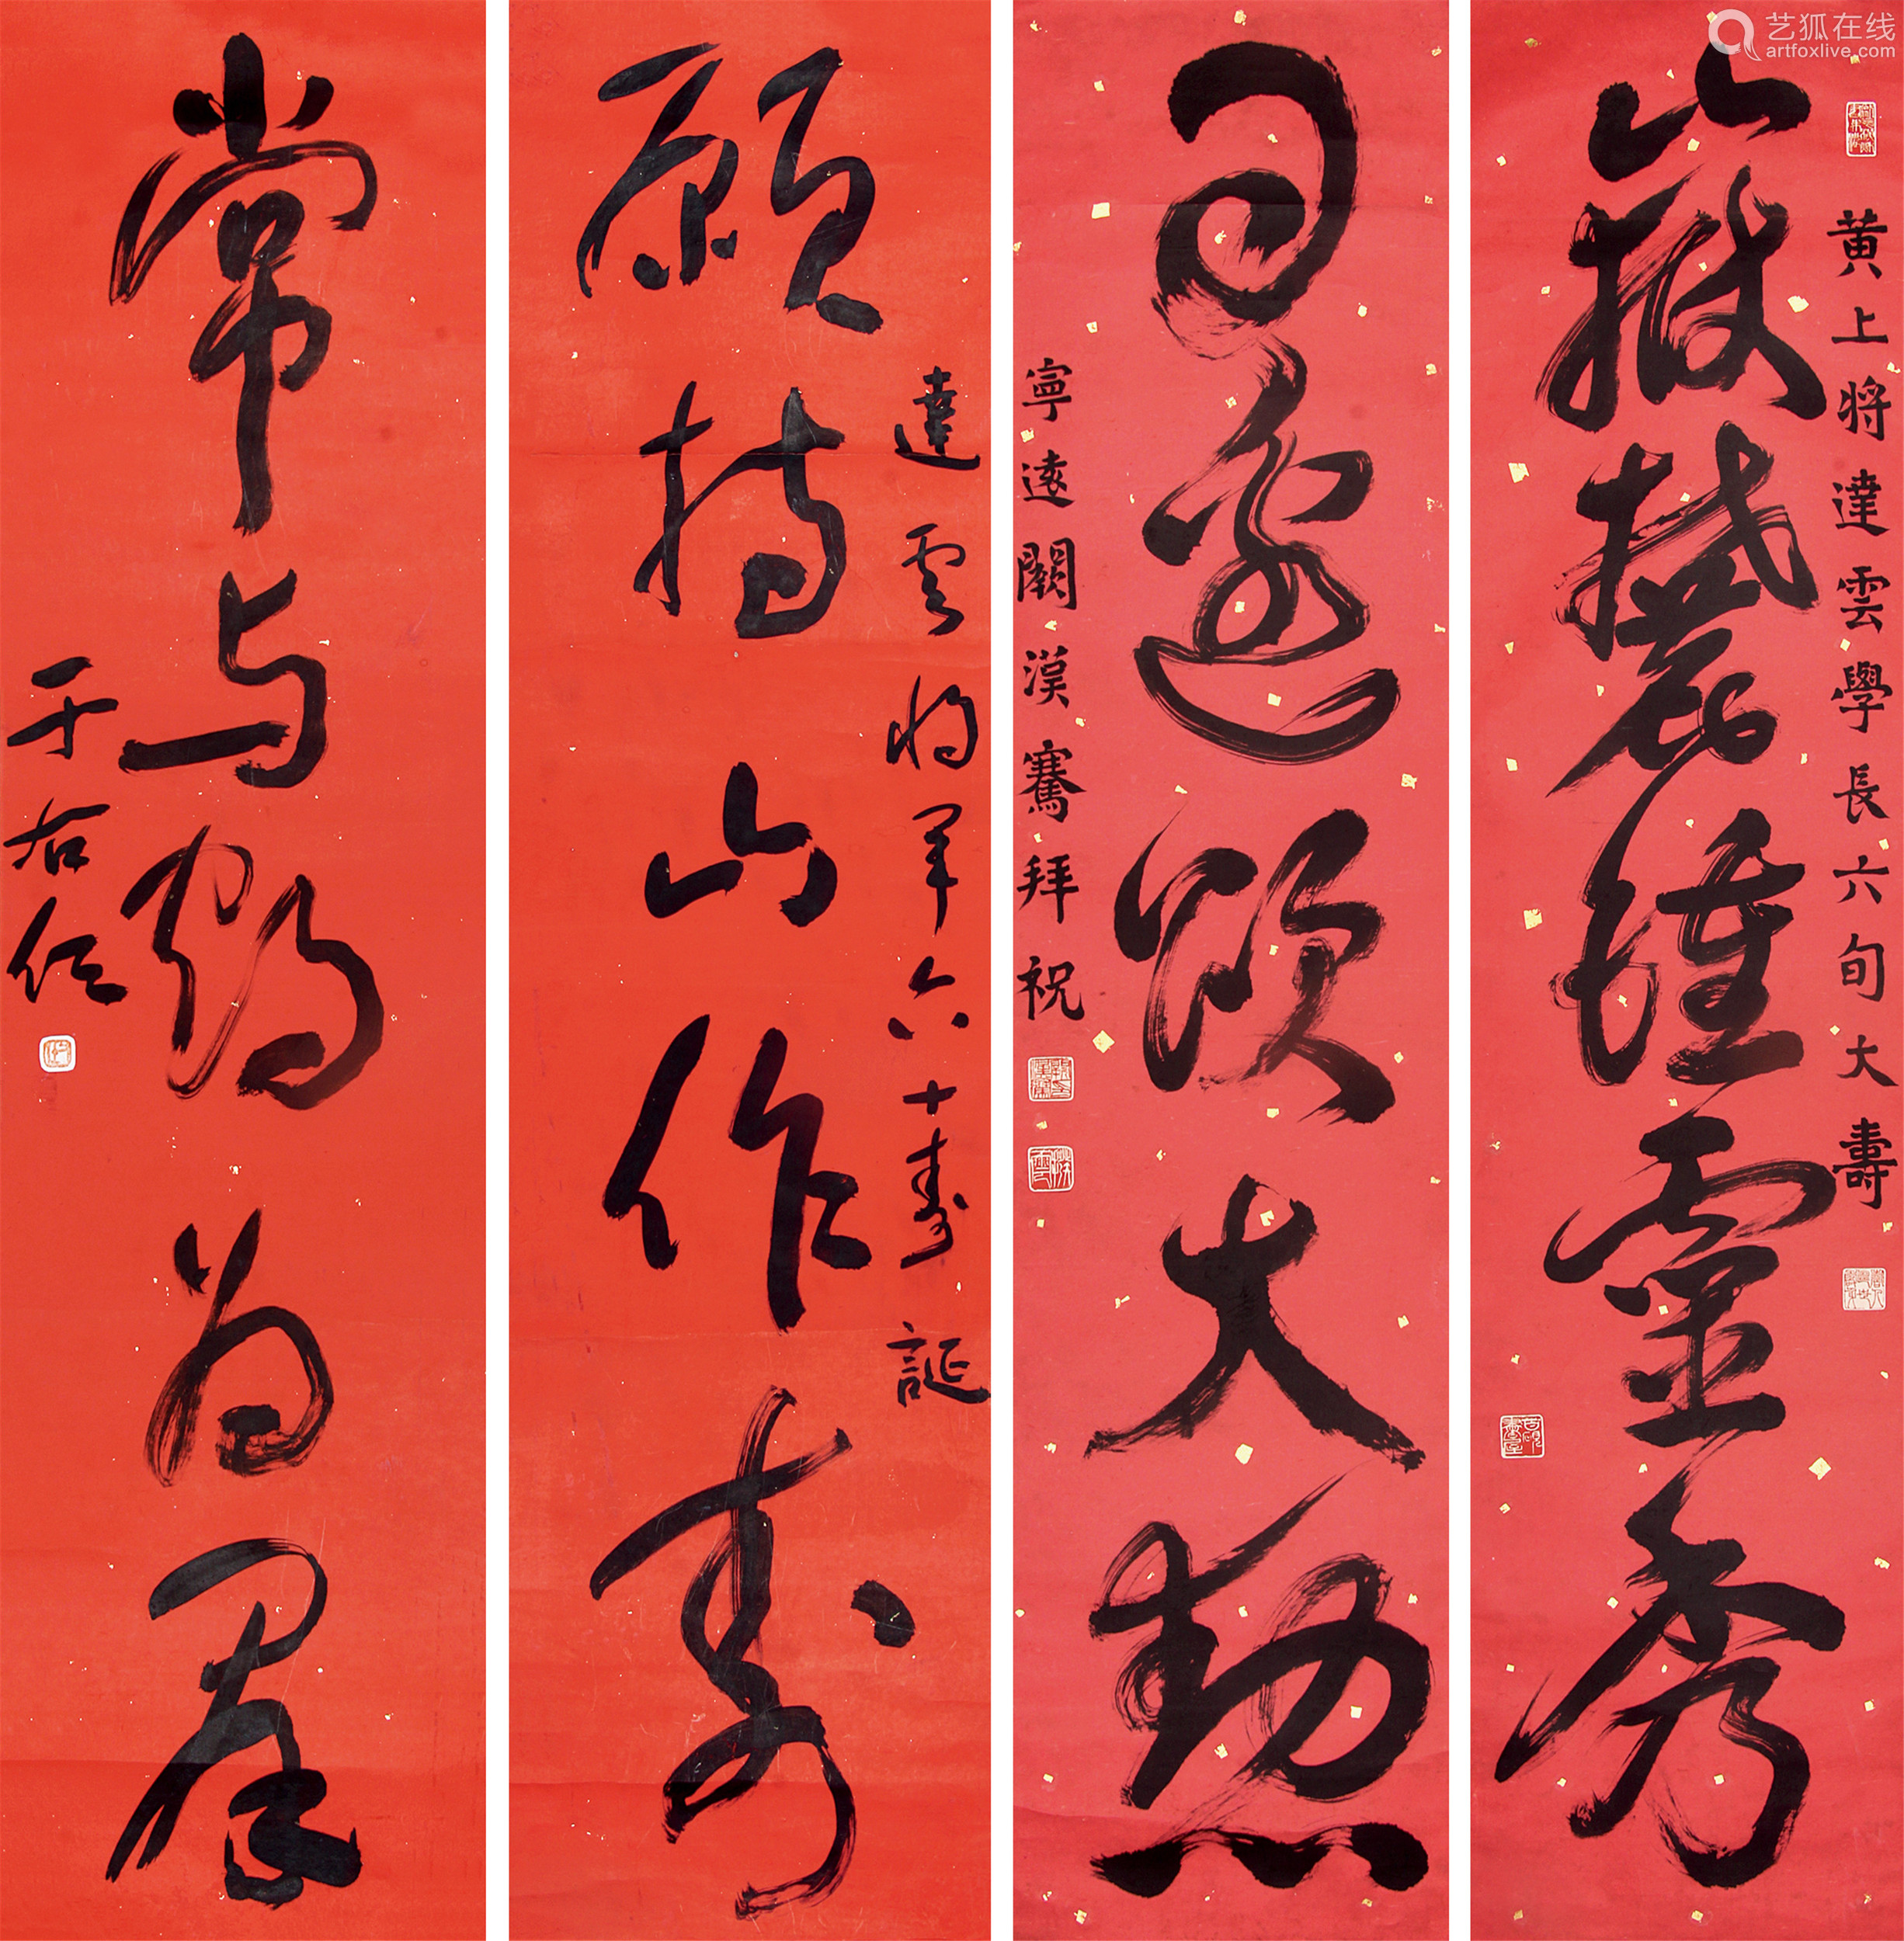 艺狐在线
artfoxlive.com
黃上將達雲學長六旬大壽
嶽麓鍾靈秀
頌大勳
寧遠闕漢騫拜祝
達雲將軍六十壽誕
願持山作壽
常与鶴為羣
于右任